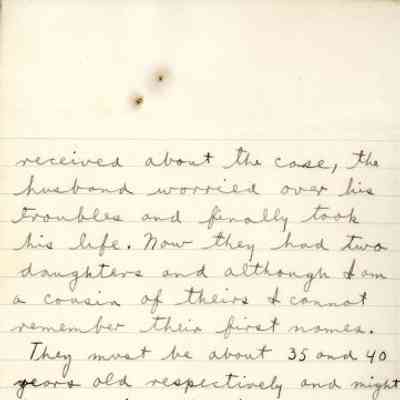 received about the case, the
husband worried over his
troubles and finally took
his life. Now they had two
daughters and although I am
a cousin of theirs I cannot
remember their first names.
They must be about 35 and 40
years old respectively and might